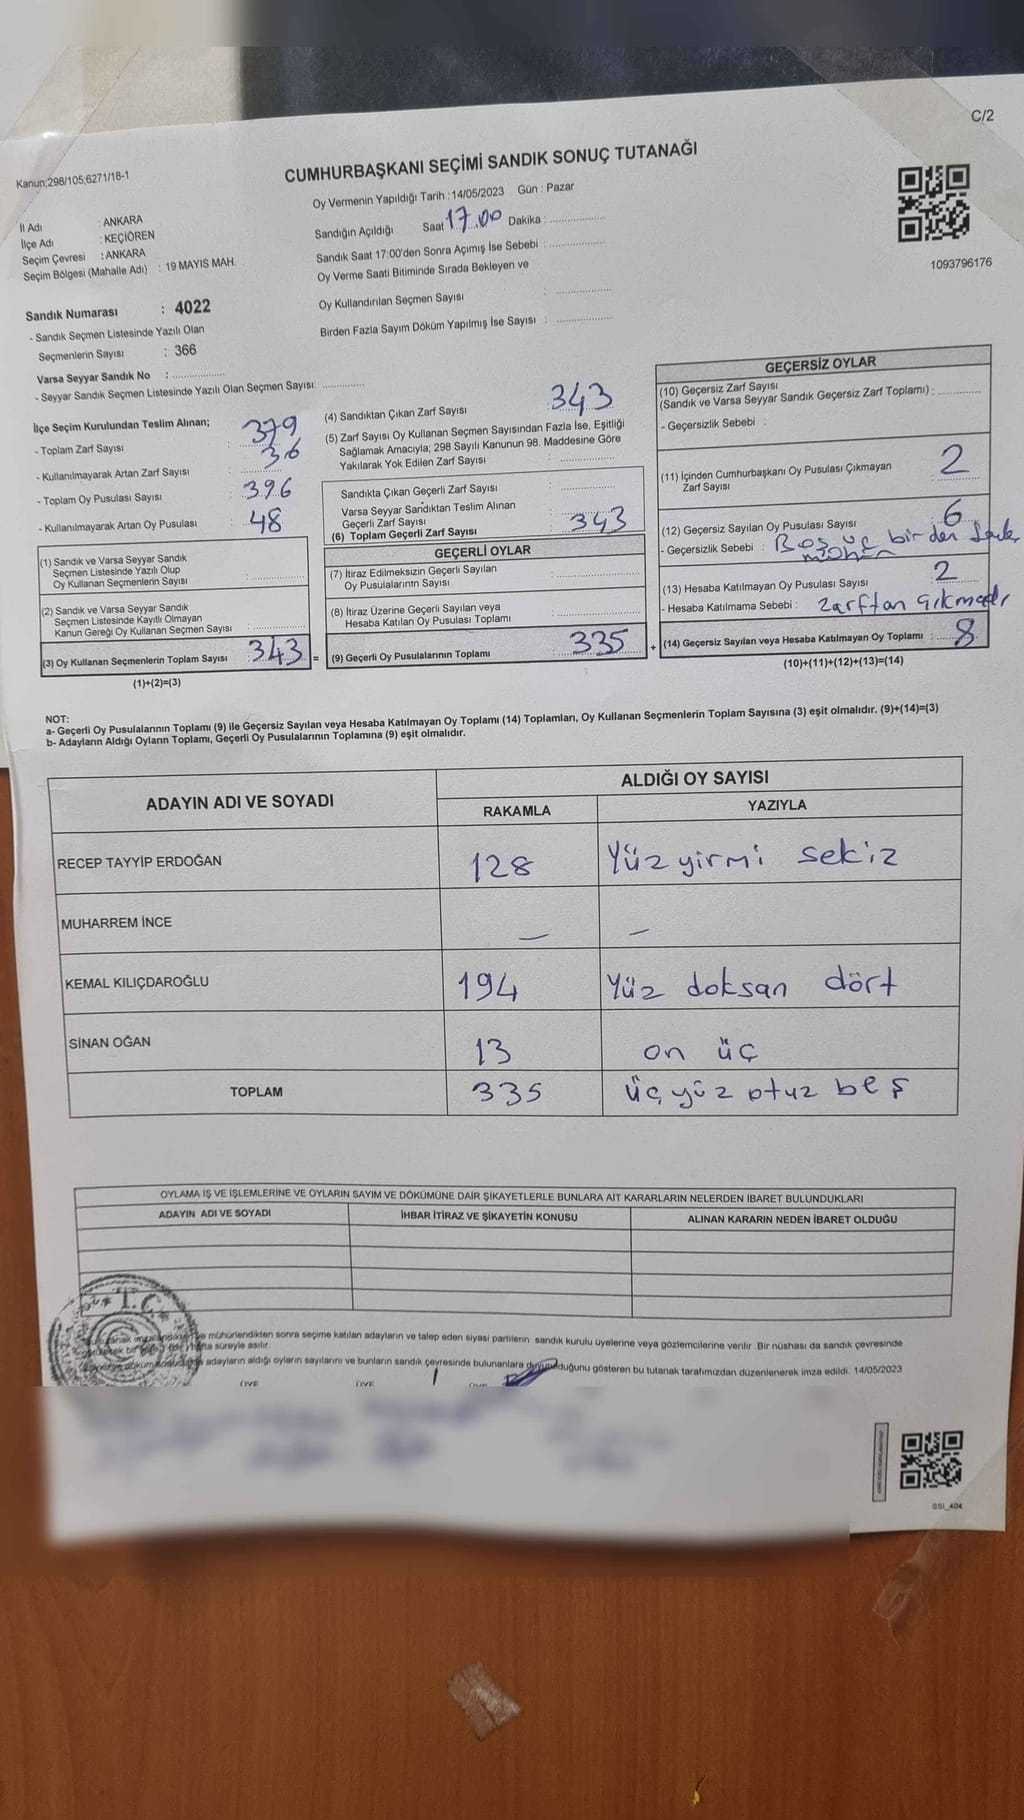 C/2
Kanun;298/105;6271/18-1
CUMHURBAŞKANI SEÇİMİ SANDIK SONUÇ TUTANAĞI
Oy Vermenin Yapıldığı Tarih : 14/05/2023 Gün : Pazar
İl Adı : ANKARA
İlçe Adı : KEÇİÖREN
Seçim Çevresi : ANKARA
Seçim Bölgesi (Mahalle Adı) : 19 MAYIS MAH.
Sandığın Açıldığı Saat 17.00 Dakika :
Sandık Saat 17:00'den Sonra Açımış İse Sebebi :
Oy Verme Saati Bitiminde Sırada Bekleyen ve
Oy Kullandırılan Seçmen Sayısı :
Birden Fazla Sayım Döküm Yapılmış İse Sayısı :
1093796176
Sandık Numarası : 4022
- Sandık Seçmen Listesinde Yazılı Olan
Seçmenlerin Sayısı : 366
Varsa Seyyar Sandık No :
- Seyyar Sandık Seçmen Listesinde Yazılı Olan Seçmen Sayısı:
İlçe Seçim Kurulundan Teslim Alınan;
- Toplam Zarf Sayısı : 379
- Kullanılmayarak Artan Zarf Sayısı : 36
- Toplam Oy Pusulası Sayısı : 396
- Kullanılmayarak Artan Oy Pusulası : 48
(1) Sandık ve Varsa Seyyar Sandık
Seçmen Listesinde Yazılı Olup
Oy Kullanan Seçmenlerin Sayısı :
(2) Sandık ve Varsa Seyyar Sandık
Seçmen Listesinde Kayıtlı Olmayan
Kanun Gereği Oy Kullanan Seçmen Sayısı :
(3) Oy Kullanan Seçmenlerin Toplam Sayısı : 343 =
(1)+(2)=(3)
(4) Sandıktan Çıkan Zarf Sayısı : 343
(5) Zarf Sayısı Oy Kullanan Seçmen Sayısından Fazla İse, Eşitliği
Sağlamak Amacıyla; 298 Sayılı Kanunun 98. Maddesine Göre
Yakılarak Yok Edilen Zarf Sayısı :
Sandıkta Çıkan Geçerli Zarf Sayısı :
Varsa Seyyar Sandıktan Teslim Alınan
Geçerli Zarf Sayısı :
(6) Toplam Geçerli Zarf Sayısı : 343
GEÇERLİ OYLAR
(7) İtiraz Edilmeksizin Geçerli Sayılan
Oy Pusulalarının Sayısı :
(8) İtiraz Üzerine Geçerli Sayılan veya
Hesaba Katılan Oy Pusulası Toplamı :
(9) Geçerli Oy Pusulalarının Toplamı : 335 +
GEÇERSİZ OYLAR
(10) Geçersiz Zarf Sayısı
(Sandık ve Varsa Seyyar Sandık Geçersiz Zarf Toplamı) :
- Geçersizlik Sebebi :
(11) İçinden Cumhurbaşkanı Oy Pusulası Çıkmayan
Zarf Sayısı : 2
(12) Geçersiz Sayılan Oy Pusulası Sayısı : 6
- Geçersizlik Sebebi : Boş üç birden
(13) Hesaba Katılmayan Oy Pusulası Sayısı : 2
- Hesaba Katılmama Sebebi : zarftan çıkmadı
(14) Geçersiz Sayılan veya Hesaba Katılmayan Oy Toplamı : 8
(10)+(11)+(12)+(13)=(14)
NOT:
a- Geçerli Oy Pusulalarının Toplamı (9) ile Geçersiz Sayılan veya Hesaba Katılmayan Oy Toplamı (14) Toplamları, Oy Kullanan Seçmenlerin Toplam Sayısına (3) eşit olmalıdır. (9)+(14)=(3)
b- Adayların Aldığı Oyların Toplamı, Geçerli Oy Pusulalarının Toplamına (9) eşit olmalıdır.
ADAYIN ADI VE SOYADI ALDIĞI OY SAYISI
RAKAMLA YAZIYLA
RECEP TAYYİP ERDOĞAN 128 Yüz yirmi sekiz
MUHARREM İNCE – –
KEMAL KILIÇDAROĞLU 194 Yüz doksan dört
SİNAN OĞAN 13 on üç
TOPLAM 335 üç yüz otuz beş
OYLAMA İŞ VE İŞLEMLERİNE VE OYLARIN SAYIM VE DÖKÜMÜNE DAİR ŞİKAYETLERLE BUNLARA AİT KARARLARIN NELERDEN İBARET BULUNDUKLARI
ADAYIN ADI VE SOYADI İHBAR İTİRAZ VE ŞİKAYETİN KONUSU ALINAN KARARIN NEDEN İBARET OLDUĞU
T.C.
mühürlendikten sonra seçime katılan adayların ve talep eden siyasi partilerin sandık kurulu üyelerine veya gözlemcilerine verilir. Bir nüshası da sandık çevresinde
hafta süreyle asılır.
adayların aldığı oyların sayılarını ve bunların sandık çevresinde bulunanlara duyurulduğunu gösteren bu tutanak tarafımızdan düzenlenerek imza edildi. 14/05/2023
BSI_404